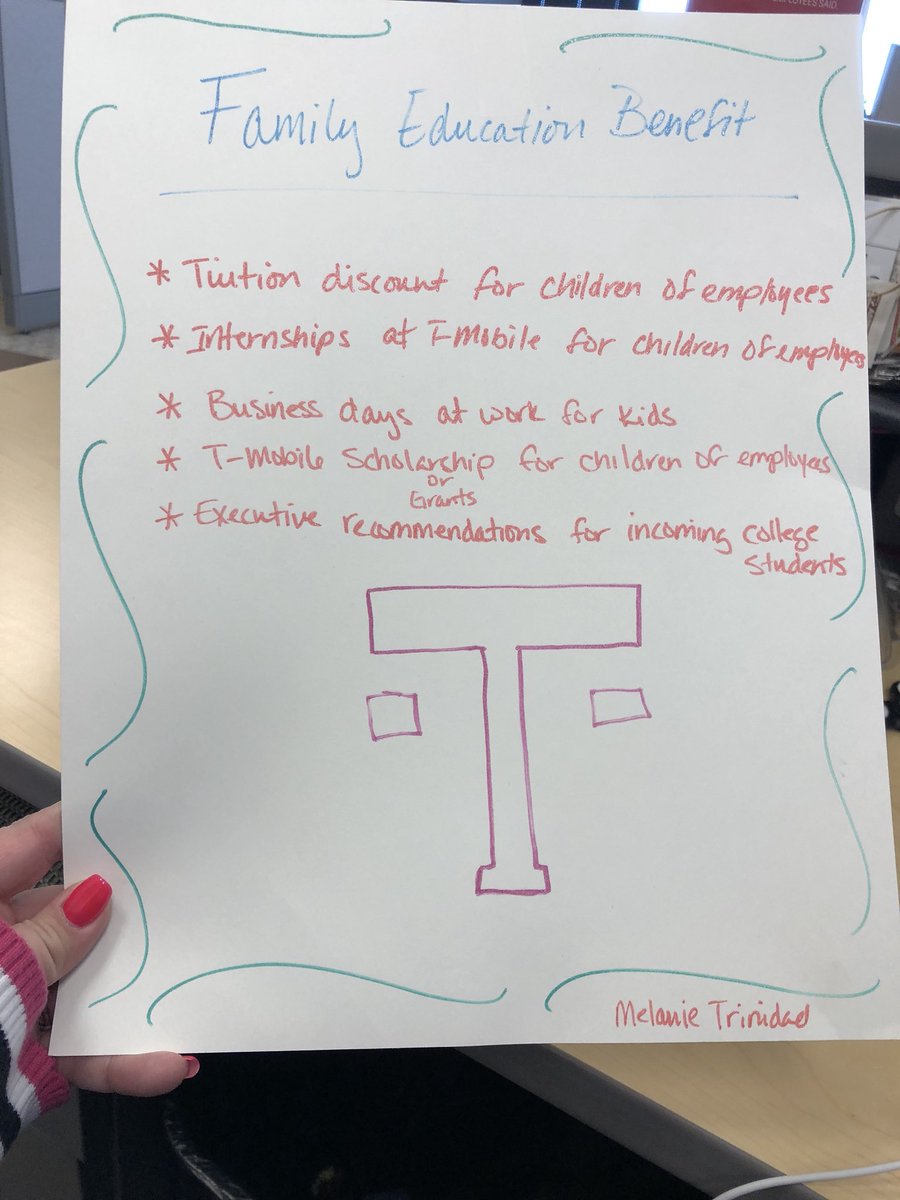 EMPLOYEES SAID
Family Education Benefit
* Tiution discount for children of employees
* Internships at T-Mobile for children of employees
* Business days at work for kids
* T-Mobile Scholarship for children of employees
or
Grants
* Executive recommendations for incoming college
Students
T
Melanie Trinidad